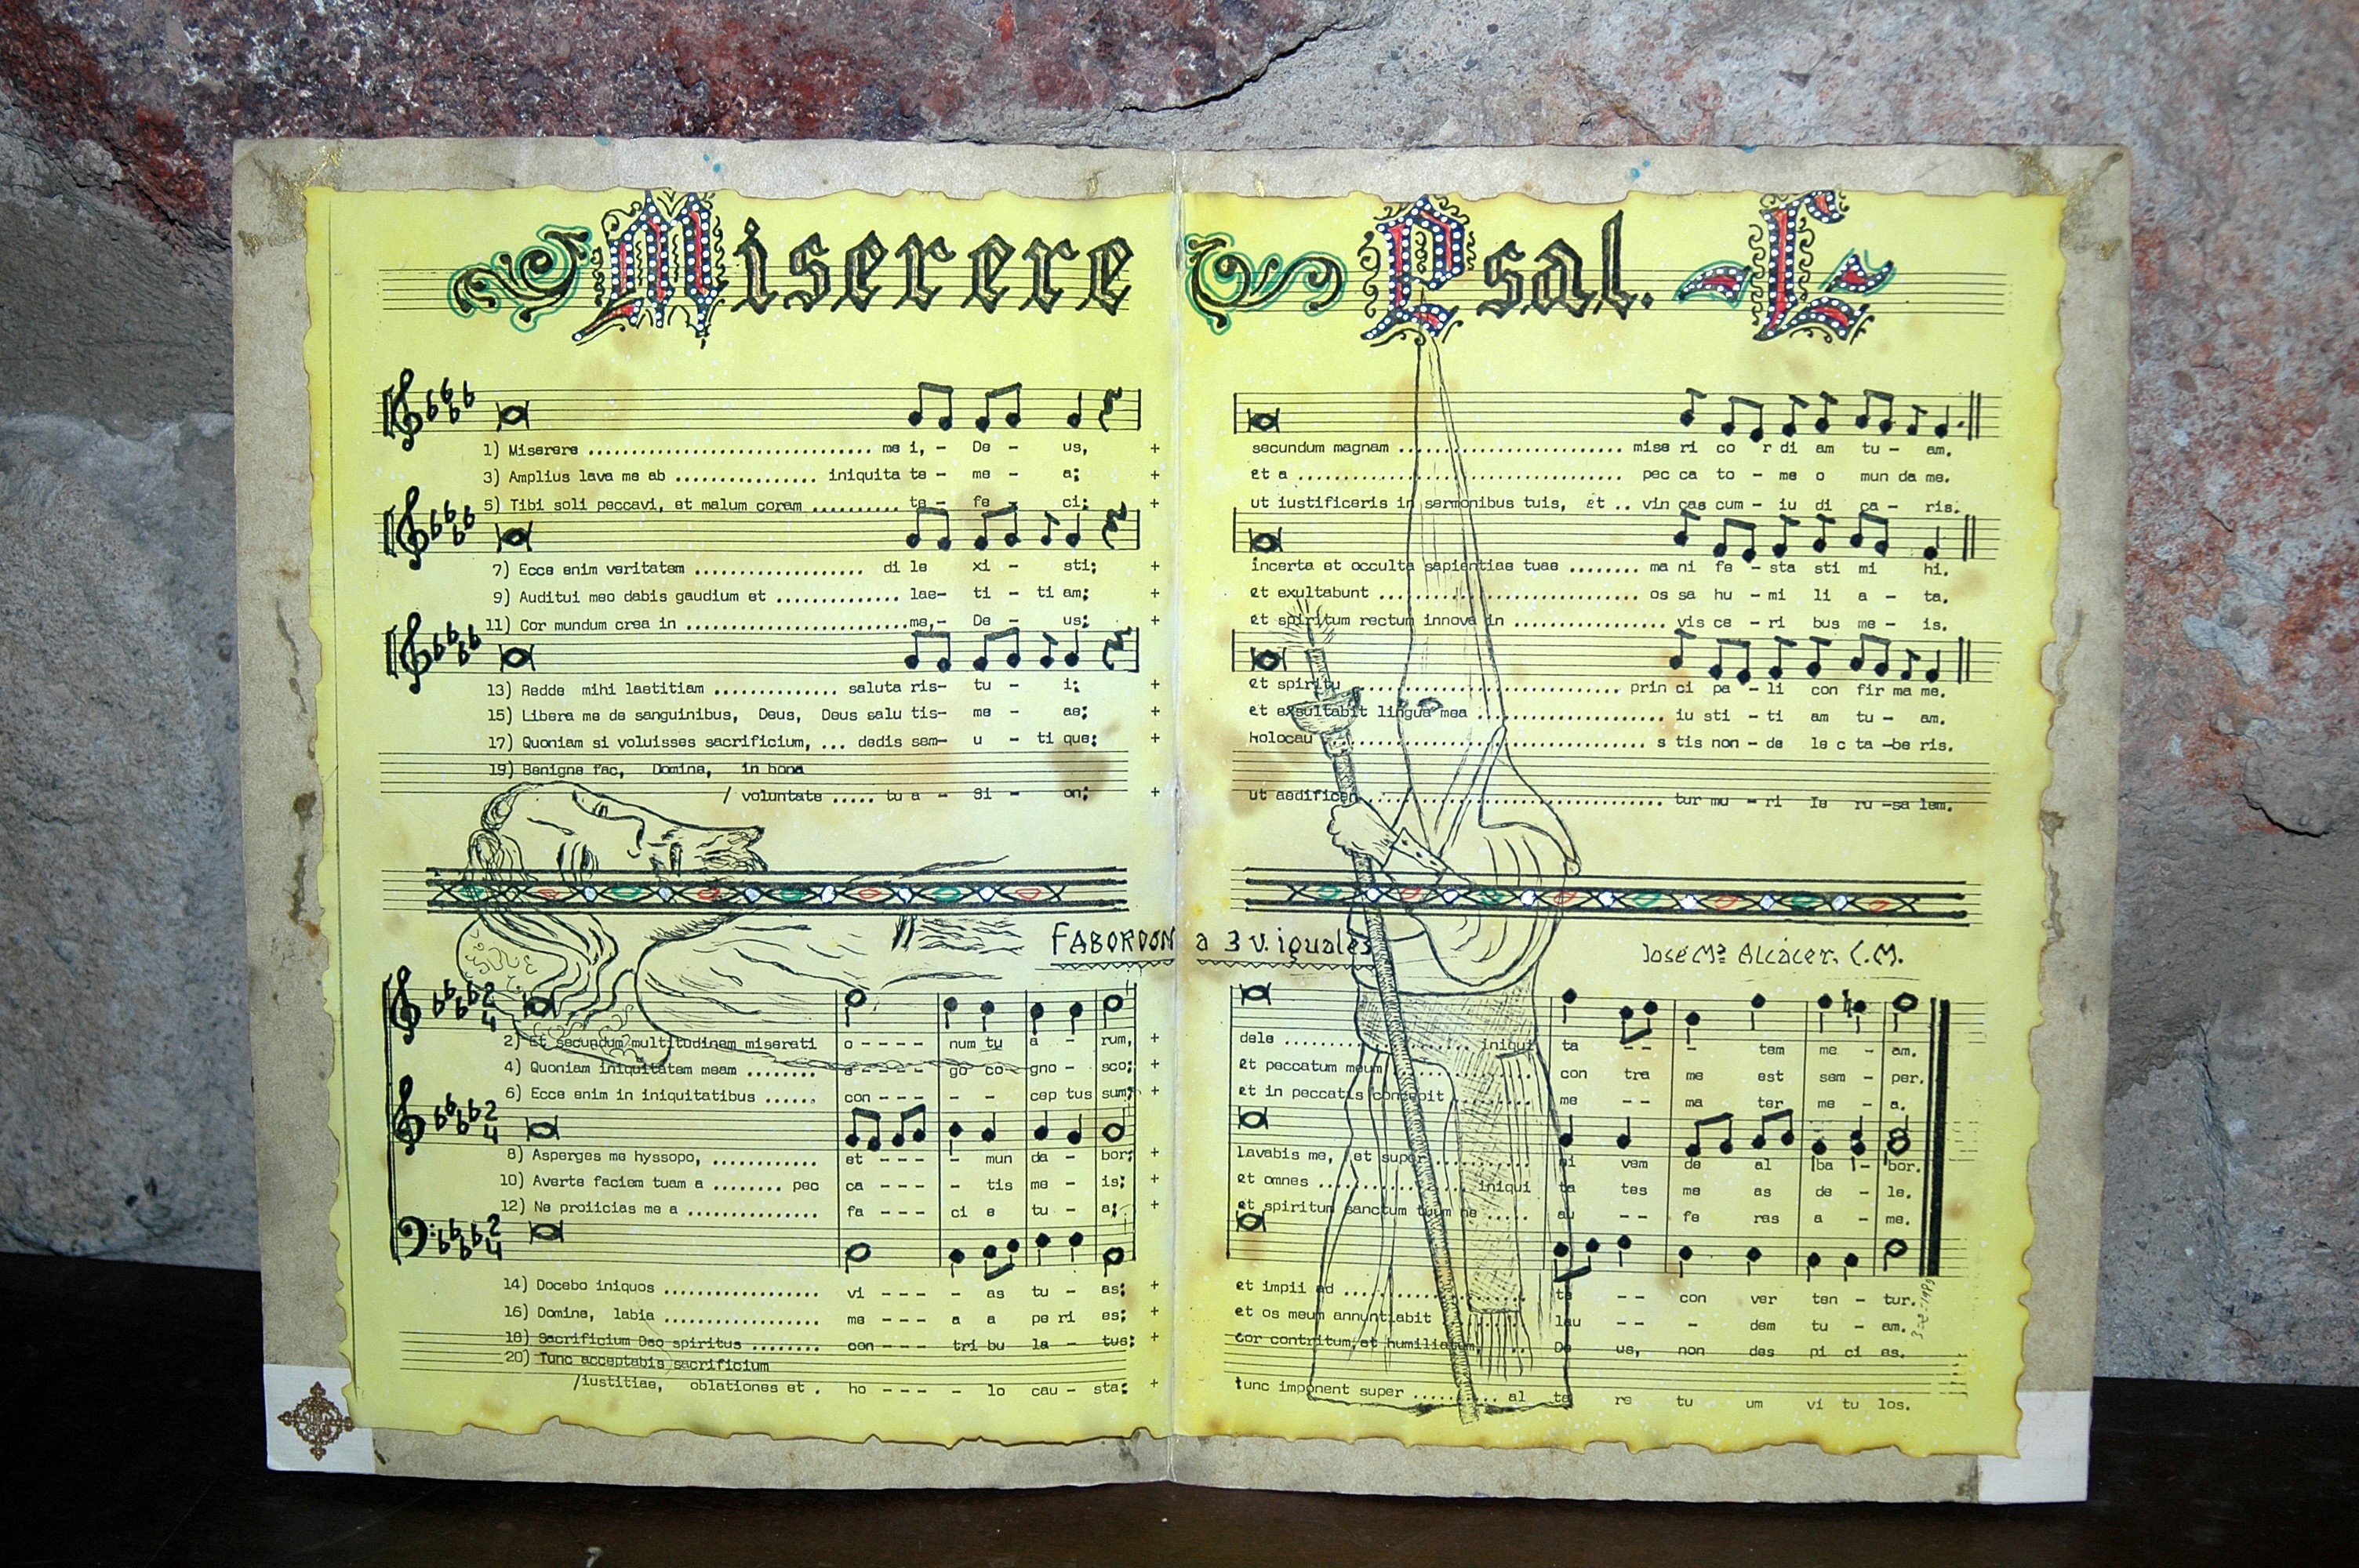 Miserere Psal. - L -
1) Miserere ................................ me i, - De - us, + secundum magnam ............................ mise ri co r di am tu - am.
3) Amplius lava me ab ................ iniquita te - me - a; + et a ........................................ pec ca to - me o mun da me.
5) Tibi soli peccavi, et malum coram .......... te - fe - ci; + ut iustificeris in sermonibus tuis, et .. vin cas cum - iu di ca - ris.
7) Ecce enim veritatem ................... di le xi - sti; + incerta et occulta sapientiae tuae ........ ma ni fe - sta sti mi hi.
9) Auditui meo dabis gaudium et .............. lae- ti - ti am; + et exultabunt ................................ os sa hu - mi li a - ta.
11) Cor mundum crea in .........................me,- De - us; + et spiritum rectum innova in .................. vis ce - ri bus me - is.
13) Redde mihi laetitiam .............. saluta ris- tu - i; + et spiritu ................................. prin ci pa - li con fir ma me.
15) Libera me de sanguinibus, Deus, Deus salu tis- me - ae; + et exsultabit lingua mea ...................... iu sti - ti am tu - am.
17) Quoniam si voluisses sacrificium, ... dedis sem- u - ti que; + holocau ........................................ s tis non - de le c ta -be ris.
19) Benigne fac, Domine, in bona
/ voluntate ..... tu a - Si - on; + ut aedificen .................................. tur mu - ri Ie ru -sa lem.
FABORDON a 3 v. iguales José Mª Alcácer, C.M.
2) Et secundum multitudinem miserati o - - - - num tu a - rum, + dele ........................ iniqui ta - - - tem me - am.
4) Quoniam iniquitatem meam ........ e - - - - go co - gno - sco; + et peccatum meum .............. con tra me est sem - per.
6) Ecce enim in iniquitatibus ...... con - - - - - cep tus sum; + et in peccatis concepit ......... me - - ma ter me - a.
8) Asperges me hyssopo, ............ et - - - - mun da - bor; + lavabis me, et super ............ ni vem de al ba - bor.
10) Averte faciem tuam a ........ pec ca - - - - tis me - is; + et omnes .................. iniqui ta tes me as de - le.
12) Ne proiicias me a ............... fa - - - ci e tu - a; + et spiritum sanctum tuum ne ..... au - - fe ras a - me.
14) Docebo iniquos .................. vi - - - - as tu - as; + et impii ad ...................... te - - con ver ten - tur.
16) Domine, labia ................... me - - - a a pe ri es; + et os meum annuntiabit ........ lau - - - dem tu - am.
18) Sacrificium Deo spiritus ........ con - - - tri bu la - tus; + cor contritum, et humiliatum, .. De us, non des pi ci es.
20) Tunc acceptabis sacrificium
/iustitiae, oblationes et . ho - - - - lo cau - sta; + tunc imponent super .......... al ta re tu um vi tu los.